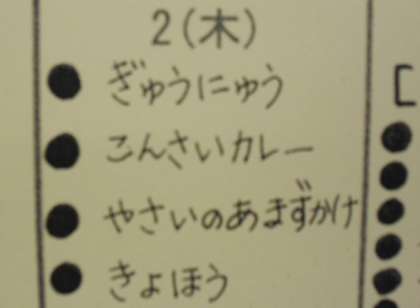 2(木)
ぎゅうにゅう
こんさいカレー
やさいのあまずかけ
きょほう